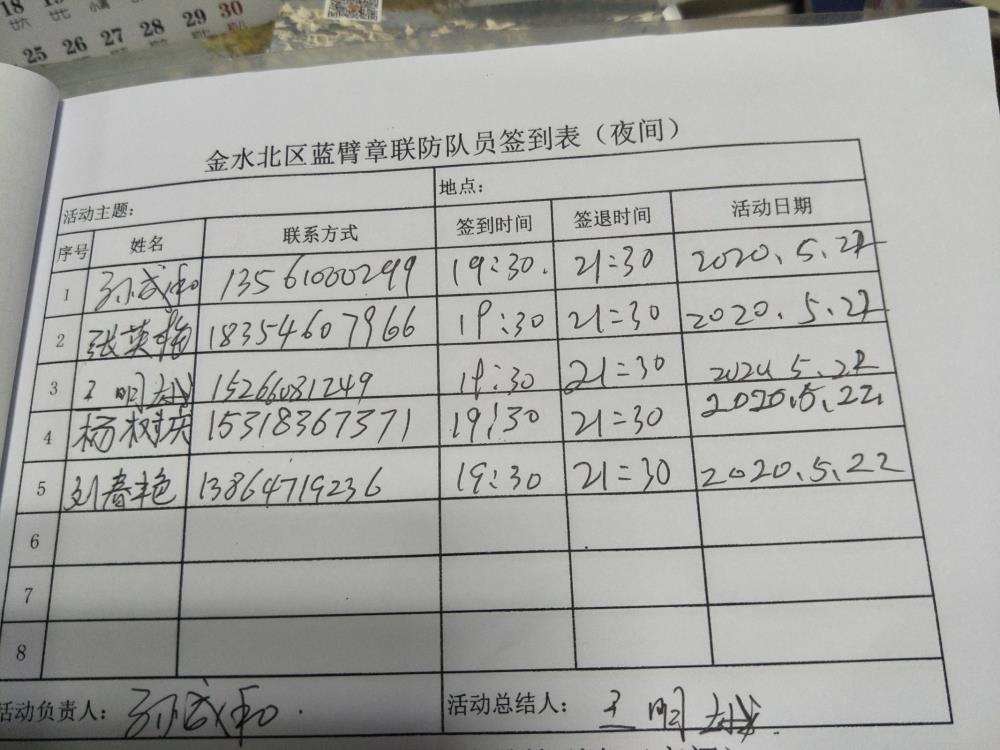 18 19 28 29 30
25 26 27 28 29 30
金水北区蓝臂章联防队员签到表（夜间）
活动主题： 地点：
序号 姓名 联系方式 签到时间 签退时间 活动日期
1 孙成和 13561000299 19:30. 21:30 2020.5.22
2 张英梅 18354607966 19:30 21:30 2020.5.22
3 王明 15266081249 19:30 21:30 2020.5.22
4 杨树庆 15318367371 19:30 21:30 2020.5.22.
5 刘春艳 13864719236 19:30 21:30 2020.5.22
6
7
8
活动负责人：孙成和. 活动总结人：王明